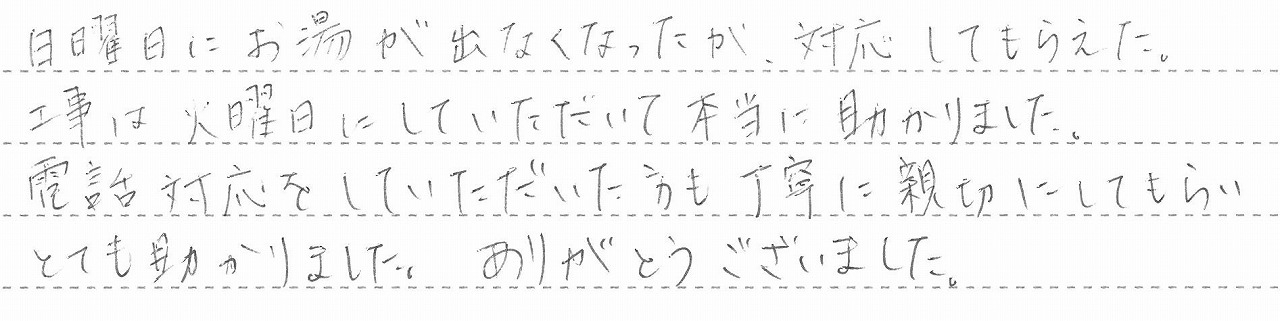 日曜日にお湯が出なくなったが、対応してもらえた。
工事は火曜日にしていただいて本当に助かりました。
電話対応をしていただいた方も丁寧に親切にしてもらい
とても助かりました。ありがとうございました。